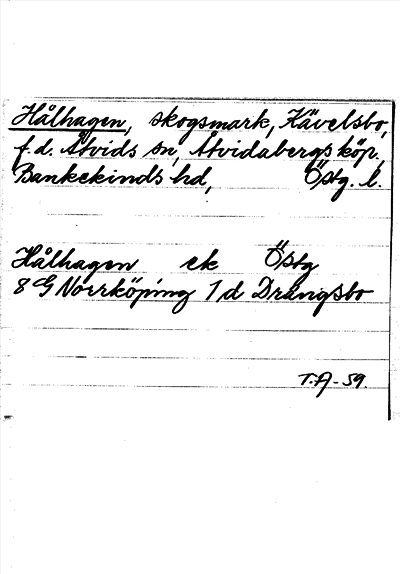 Hålhagen, skogsmark, Kävelsbo,
f.d. Åtvids sn, Åtvidabergs köp,
Bankekinds hd, Östg. l.
Hålhagen ek Östg
8 G Norrköping 1 d Drängsbo
T.A-59.